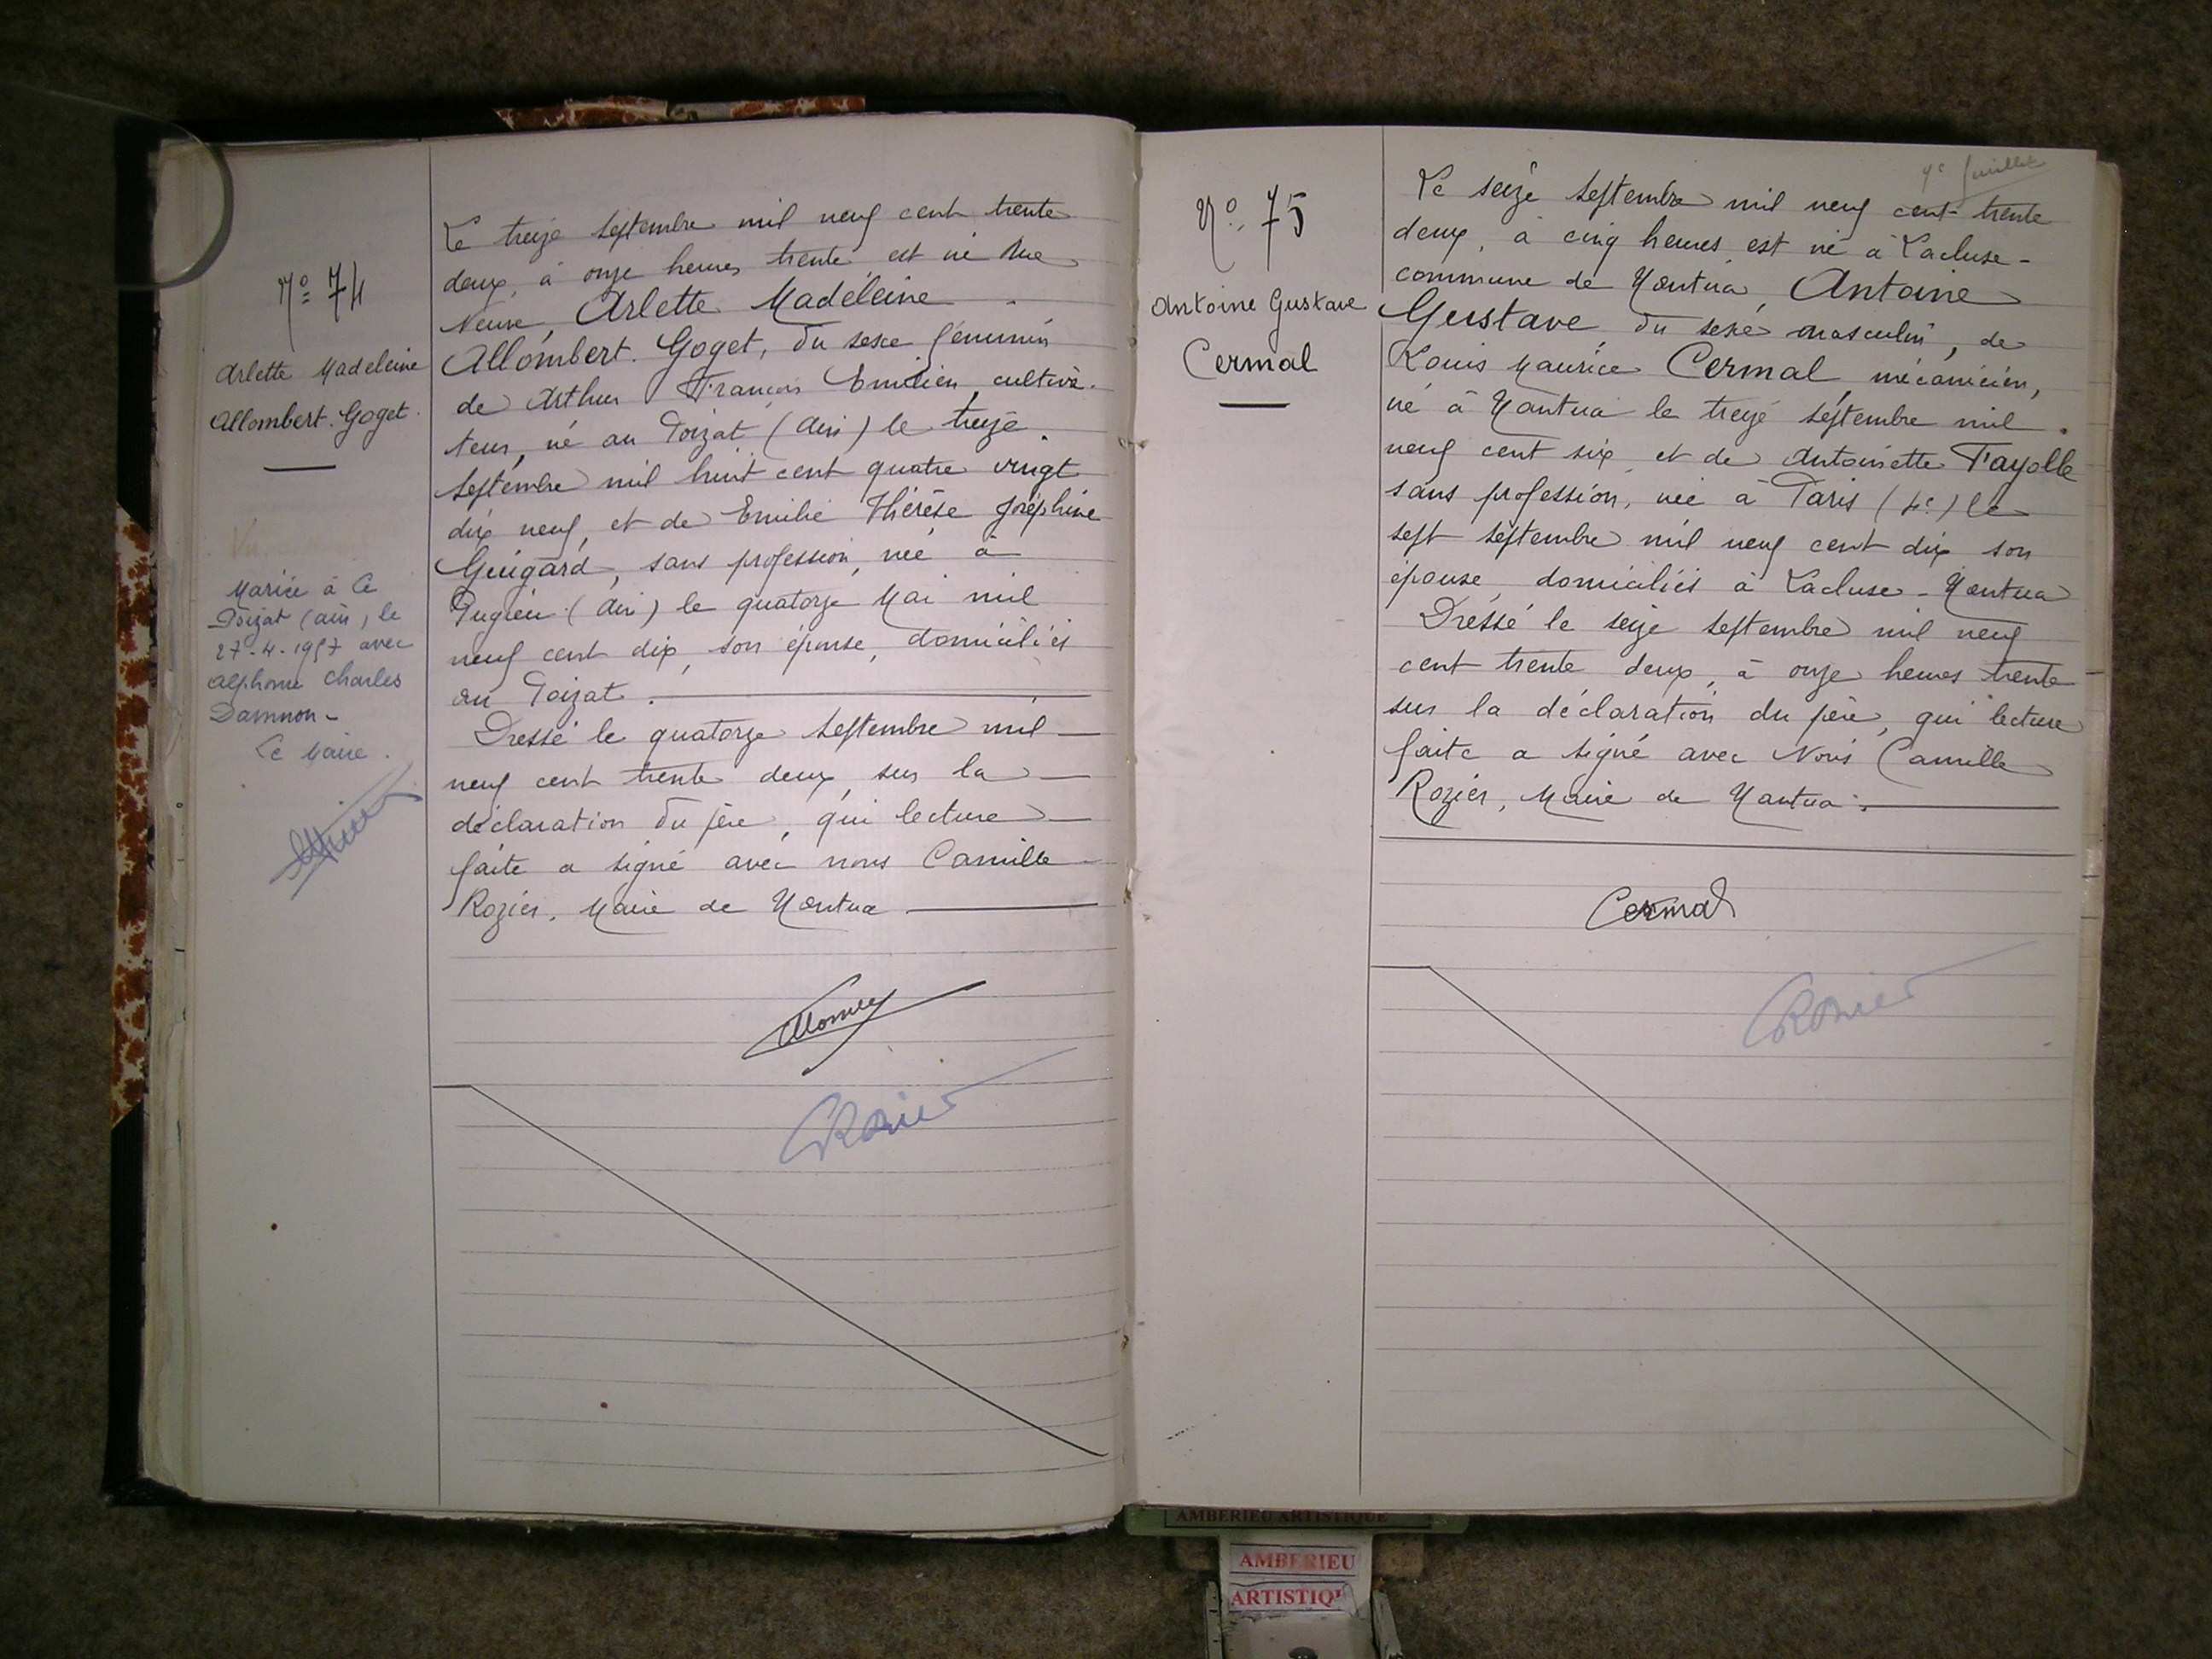 N° 74
Arlette Madeleine
Allombert. Goget.
Mariée à Le
Poizat (Ain), le
27-4-1957 avec
Alphonse Charles
Le Maire.
Le treize septembre mil neuf cent trente
deux, à onze heures trente est né Rue
Neuve, Arlette Madeleine
Allombert. Goget, du sexe féminin
de Arthur François Emilien, cultiva-
teur, né au Poizat (Ain) le treize
septembre mil huit cent quatre vingt
dix neuf, et de Emilie Thérèse Joséphine
Guigard, sans profession, née à
Pugieu (Ain) le quatorze Mai mil
neuf cent dix, son épouse, domiciliés
au Poizat.
Dressé le quatorze septembre mil
neuf cent trente deux, sur la
déclaration du père, qui lecture
faite a signé avec nous Camille
Rozier, Maire de Nantua
CRozier
N° 75
Antoine Gustave
Cermal
9e feuillet
Le seize septembre mil neuf cent trente
deux, à cinq heures, est né à Lacluse-
commune de Nantua, Antoine
Gustave du sexe masculin, de
Louis Maurice Cermal, mécanicien,
né à Nantua le treize septembre mil
neuf cent six, et de Antoinette Fayolle
sans profession, née à Paris (4e) le
sept septembre mil neuf cent dix son
épouse, domiciliés à Lacluse-Nantua
Dressé le seize septembre mil neuf
cent trente deux, à onze heures trente
sur la déclaration du père, qui lecture
faite a signé avec Nous Camille
Rozier, Maire de Nantua.
Cermal
CRozier
AMBERIEU ARTISTIQUE
AMBERIEU
ARTISTIQU